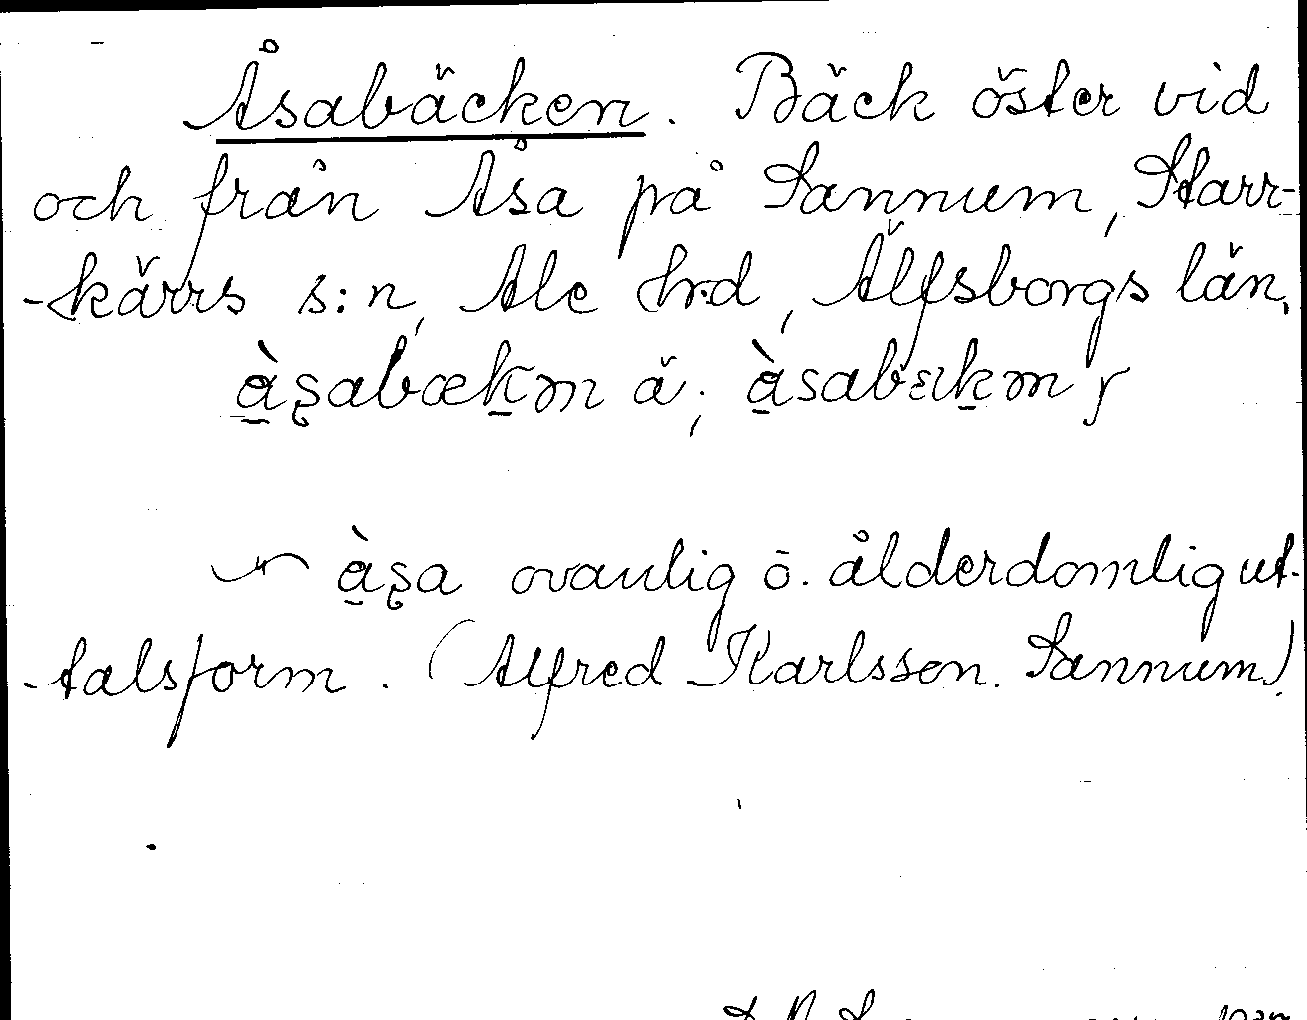 Åsabäcken. Bäck öster vid
och från Åsa på Sannum, Starr-
-kärrs s:n, Ale hrd, Älfsborgs län.
ovanlig o. ålderdomlig ut-
-talsform. (Alfred Karlsson. Sannum)